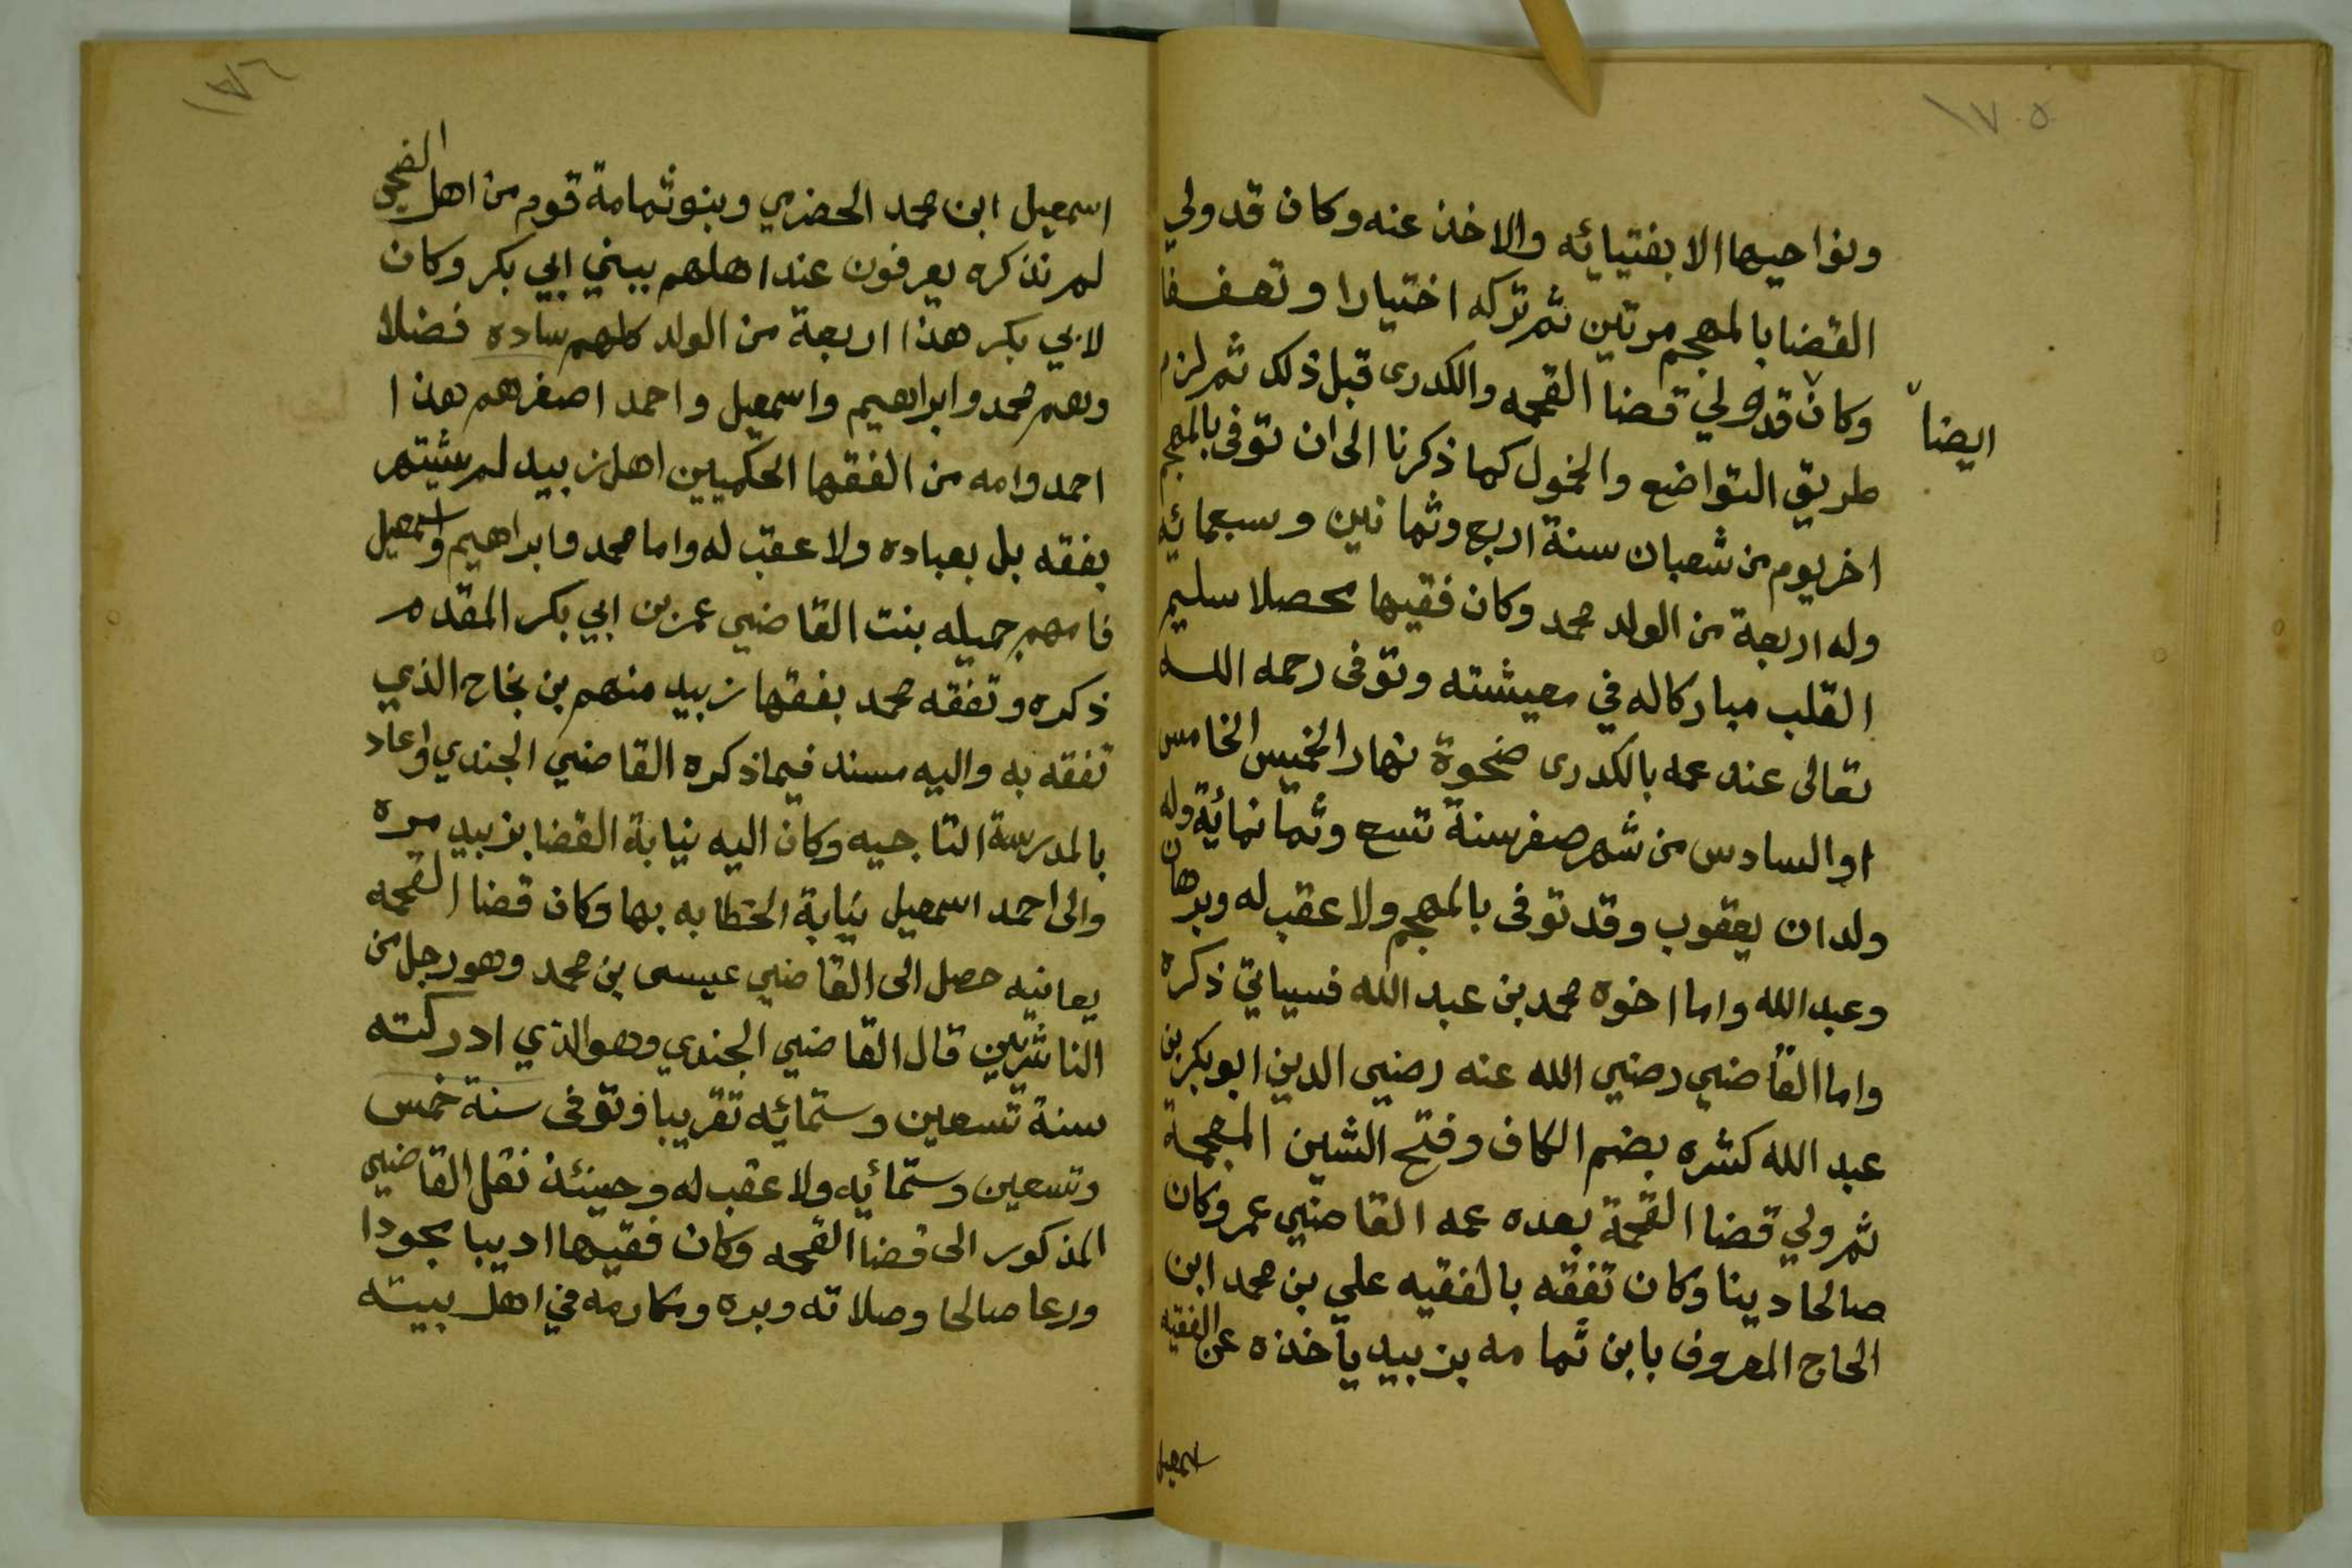 ١٧٥
ونواحيها الا بفتيائه والاخذ عنه وكان قد ولي
القضا بالمهجم مرتين ثم تركه اختيارا وتعففا
وكان قد ولي قضا القحمه والكدرى قبل ذلك ثم لزم
ايضا
طريق التواضع والخمول كما ذكرنا الى ان توفى بالمهجم
اخر يوم من شعبان سنة اربع وثمانين وسبعمائه
وله اربعة من الولد محمد وكان فقيها محصلا سليم
القلب مباركا له في معيشته وتوفى رحمه الله
تعالى عند عمه بالكدرى ضحوة نهار الخميس الخامس
او السادس من شهر صفر سنة تسع وثمانمائة وله
ولدان يعقوب وقد توفى بالمهجم ولا عقب له وبرهان
وعبد الله واما اخوه محمد بن عبد الله فسياتي ذكره
واما القاضي رضي الله عنه رضي الدين ابو بكر بن
عبد الله كشره بضم الكاف وفتح الشين المعجمة
ثم ولي قضا القحمة بعده عمه القاضي عمر وكان
صالحا دينا وكان تفقه بالفقيه علي بن محمد ابن
الحاج المعروف بابن ثمامه بزبيد يأخذه عن الفقيه
اسمعيل
١٧٦
اسمعيل ابن محمد الحضرمي وبنو ثمامة قوم من اهل الضحي
لم نذكره يعرفون عند اهلهم ببني ابي بكر وكان
لابي بكر هذا اربعة من الولد كلهم ساده فضلا
وهم محمد وابراهيم واسمعيل واحمد اصغرهم هذا
احمد وامه من الفقها الحكميين اهل زبيد لم يشتهر
بفقه بل بعباده ولا عقب له واما محمد وابراهيم واسمعيل
فامهم جميله بنت القاضي عمر بن ابي بكر المقدم
ذكره وتفقه محمد بفقها زبيد منهم بن نجاح الذي
تفقه به واليه مسند فيما ذكره القاضي الجندي واعاد
بالمدرسة التاجيه وكان اليه نيابة القضا بزبيد مره
والى احمد اسمعيل نيابة الخطابه بها وكان قضا القحمه
يعانيه حصل الى القاضي عيسى بن محمد وهو رجل من
الناشريين قال القاضي الجندي وهو الذي ادركته
سنة تسعين وستمائه تقريبا وتوفى سنة خمس
وتسعين وستمائه ولا عقب له وحينئذ نقل القاضي
المذكور الى قضا القحمه وكان فقيها اديبا مجودا
ورعا صالحا وصلاته وبره ومكارمه في اهل بيته